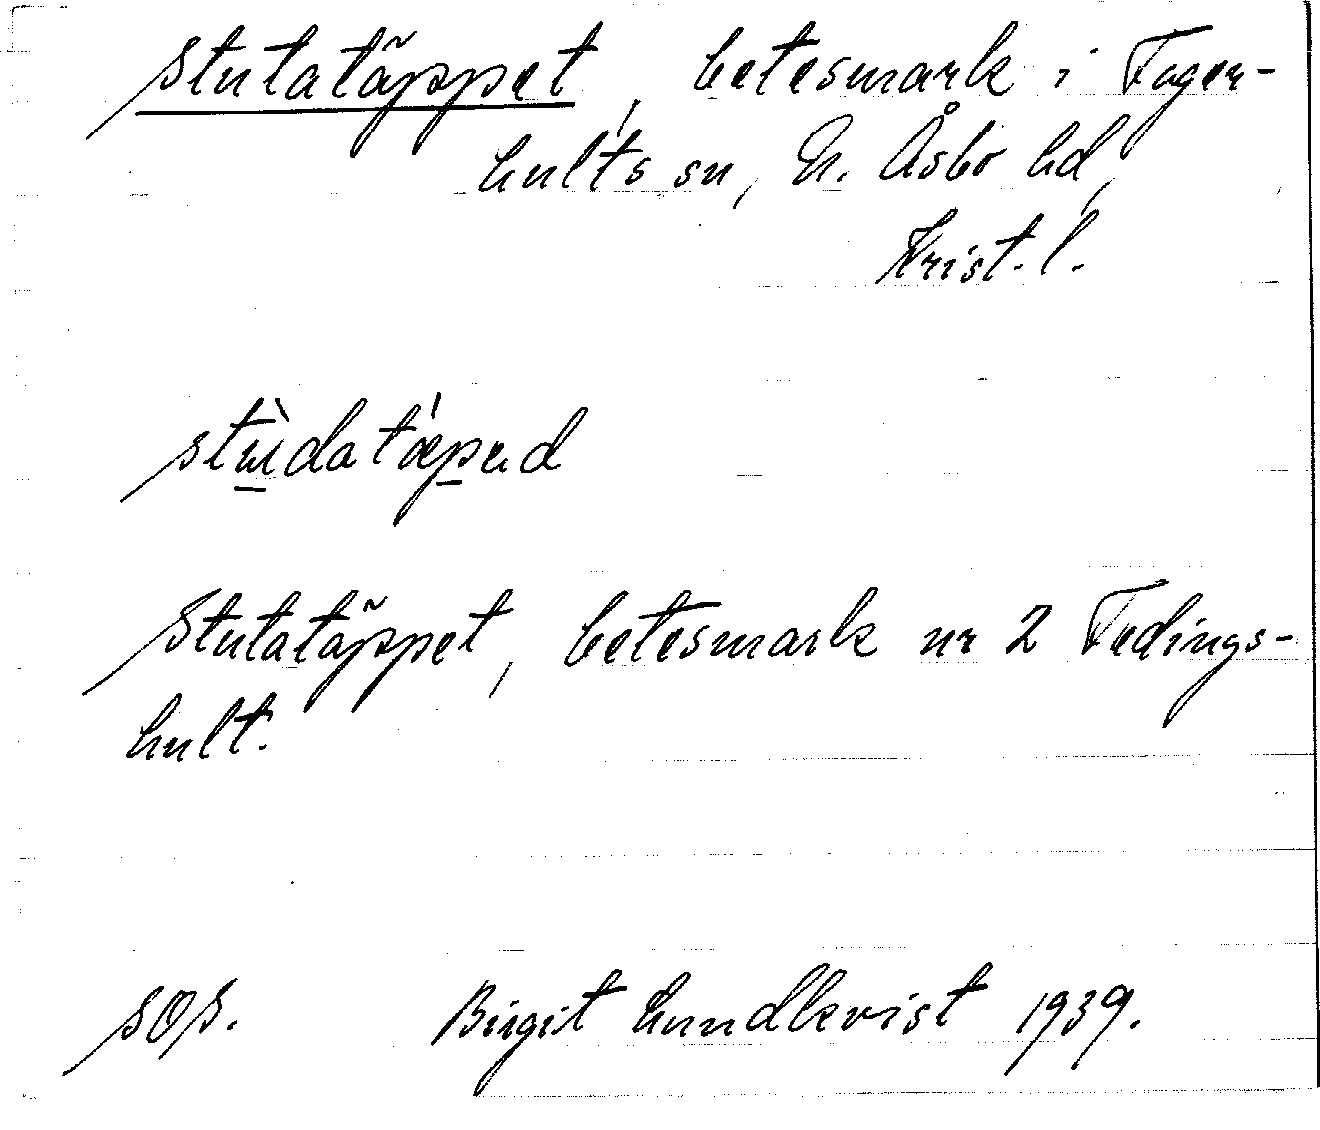 Stutatäppet, betesmark i Fager-
hults sn, N. Åsbo hd,
Krist. l.
stù̱datæ̍p̱ad
Stutatäppet, betesmark nr 2 Fedings-
hult.
SOS. Birgit Lundkvist 1939.